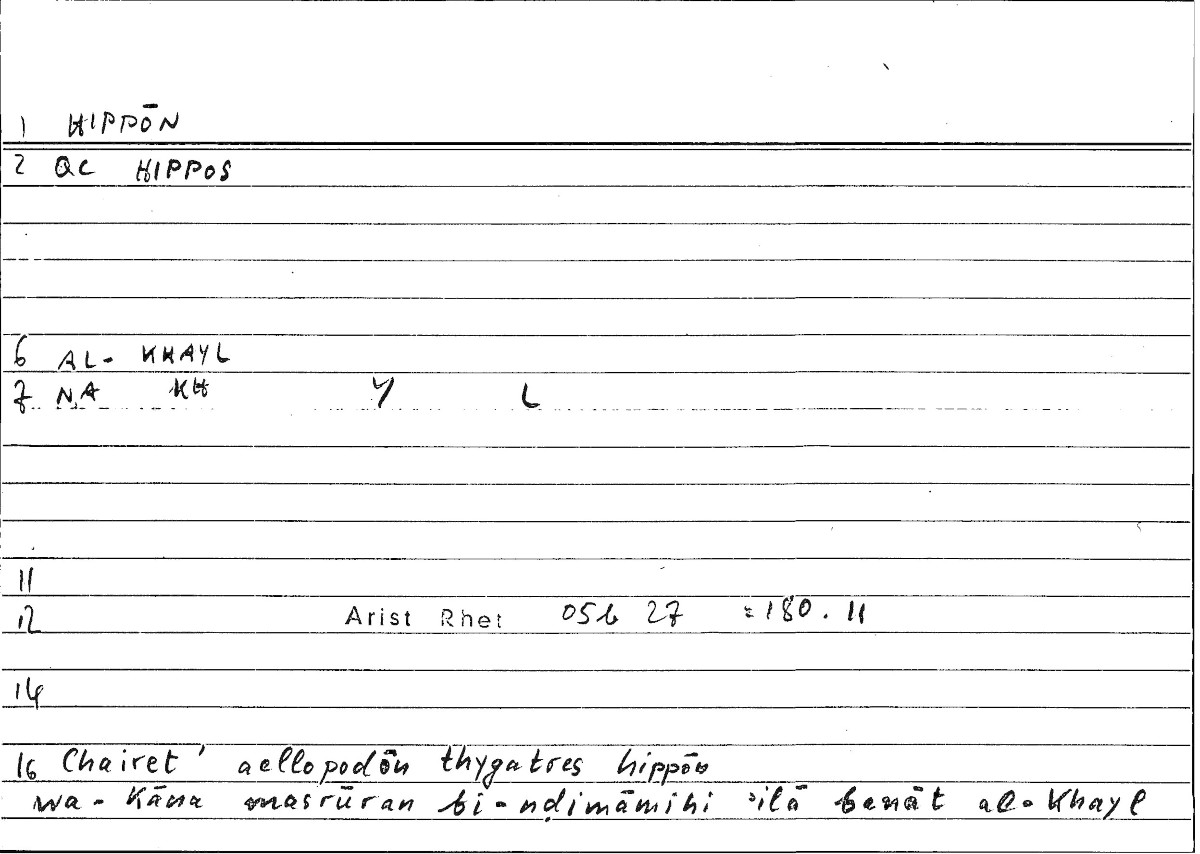 1 HIPPŌN
2 QC HIPPOS
6 AL-KHAYL
7 NA KH Y L
11
12 Arist Rhet 05b 27 = 180.11
14
16 Chairet' aellopodōn thygatres hippōn
wa-Kāna masrūran bi-nḍimāmihi ʾilā banāt al-Khayl